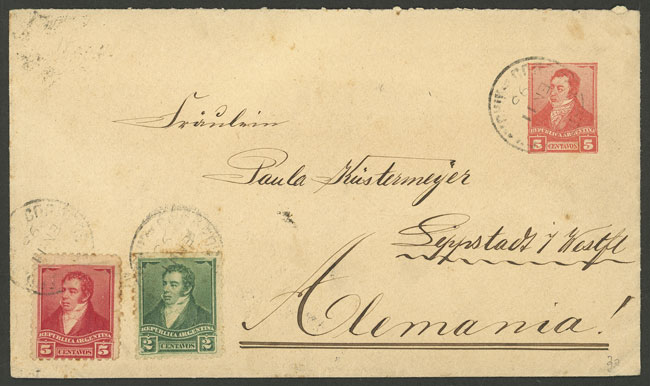 REPUBLICA ARGENTINA
5 CENTAVOS 5
Fräulein
Paula Küstermeyer
Lippstadt i/ Westfl
Alemania!
REPUBLICA ARGENTINA
5 CENTAVOS 5
REPUBLICA ARGENTINA
2 CENTAVOS 2